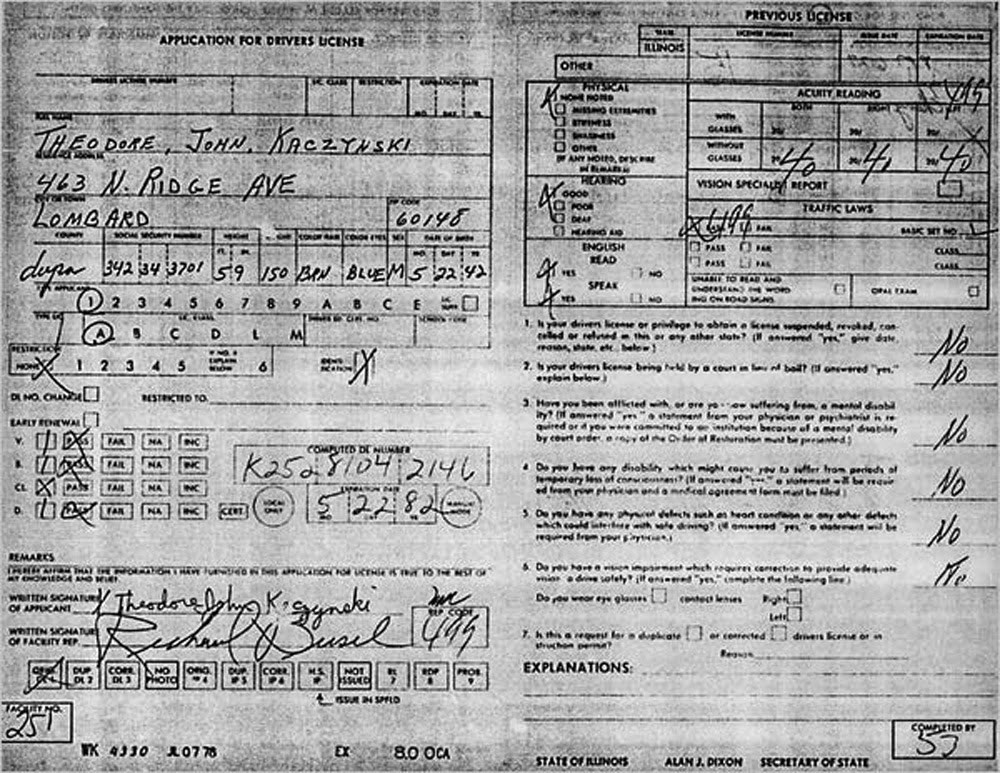 APPLICATION FOR DRIVERS LICENSE
DRIVERS LICENSE NUMBER LIC. CLASS RESTRICTION EXPIRATION DATE
MO. DAY YR.
FULL NAME
THEODORE, JOHN, KACZYNSKI
RESIDENCE ADDRESS
463 N. RIDGE AVE
CITY OR TOWN ZIP CODE
LOMBARD 60148
COUNTY SOCIAL SECURITY NUMBER HEIGHT COLOR HAIR COLOR EYES SEX DATE OF BIRTH
FT. IN. MO. DAY YR.
dupa 342 34 3701 5 9 150 BRN BLUE M 5 22 42
1 2 3 4 5 6 7 8 9 A B C E
LIC. CLASS
A B C D L M
RESTRICTION
NONE 1 2 3 4 5 IF NO. 6 EXPLAIN BELOW 6
DL NO. CHANGE RESTRICTED TO
EARLY RENEWAL
V. PASS FAIL NA INC
B. PASS FAIL NA INC
CL PASS FAIL NA INC
D. PASS FAIL NA INC CERT LOCAL ONLY
COMPUTED DL NUMBER
K252 8104 2146
EXPIRATION DATE
5 22 82
REMARKS
I HEREBY AFFIRM THAT THE INFORMATION I HAVE FURNISHED IN THIS APPLICATION FOR LICENSE IS TRUE TO THE BEST OF
MY KNOWLEDGE AND BELIEF.
WRITTEN SIGNATURE OF APPLICANT Theodore John Kaczynski
REP. CODE
499
WRITTEN SIGNATURE OF FACILITY REP. Richard
ORIG. DL 1 DUP. DL 2 CORR. DL 3 NO PHOTO ORIG. IP 4 DUP. IP 5 CORR. IP 6 H.S. IP NOT ISSUED RI 7 RDP 8 PROB. 9
ISSUE IN SPFLD
FACILITY NO.
251
WK 4330 JL 07 78 EX 8.00CA
PREVIOUS LICENSE
YEAR LICENSE NUMBER ISSUE DATE EXPIRATION DATE
ILLINOIS
OTHER
PHYSICAL
NONE NOTED
MISSING EXTREMITIES
STIFFNESS
SHAKINESS
OTHER
(IF ANY NOTED, DESCRIBE
IN REMARKS)
ACUITY READING 499
BOTH RIGHT LEFT
WITH GLASSES 20/ 20/ 20/
WITHOUT GLASSES 20/40 20/40 20/40
HEARING
GOOD
POOR
DEAF
HEARING AID
VISION SPECIALIST REPORT
TRAFFIC LAWS
499 FAIL BASIC SET NO.
PASS FAIL CLASS
PASS FAIL CLASS
ENGLISH
READ
YES NO
SPEAK
YES NO
UNABLE TO READ AND
UNDERSTAND THE WORD
ING ON ROAD SIGNS
ORAL EXAM
1. Is your drivers license or privilege to obtain a license suspended, revoked, can-
celled or refused in this or any other state? (If answered "yes," give date,
reason, state, etc., below.) No
2. Is your drivers license being held by a court in lieu of bail? (If answered "yes,"
explain below.) No
3. Have you been afflicted with, or are you now suffering from, a mental disabil
ity? (If answered "yes" a statement from your physician or psychiatrist is re-
quired or if you were committed to an institution because of a mental disability
by court order, a copy of the Order of Restoration must be presented.) No
4. Do you have any disability which might cause you to suffer from periods of
temporary loss of consciousness? (If answered "yes," a statement will be requir
ed from your physician and a medical agreement form must be filed.) No
5. Do you have any physical defects such as heart condition or any other defects
which could interfere with safe driving? (If answered "yes," a statement will be
required from your physician.) No
6. Do you have a vision impairment which requires correction to provide adequate
vision a drive safely? (If answered "yes," complete the following line.) No
Do you wear eye glasses contact lenses Right
Left
7. Is this a request for a duplicate or corrected drivers license or in
struction permit?
Reason
EXPLANATIONS:
COMPLETED BY
53
STATE OF ILLINOIS ALAN J. DIXON SECRETARY OF STATE